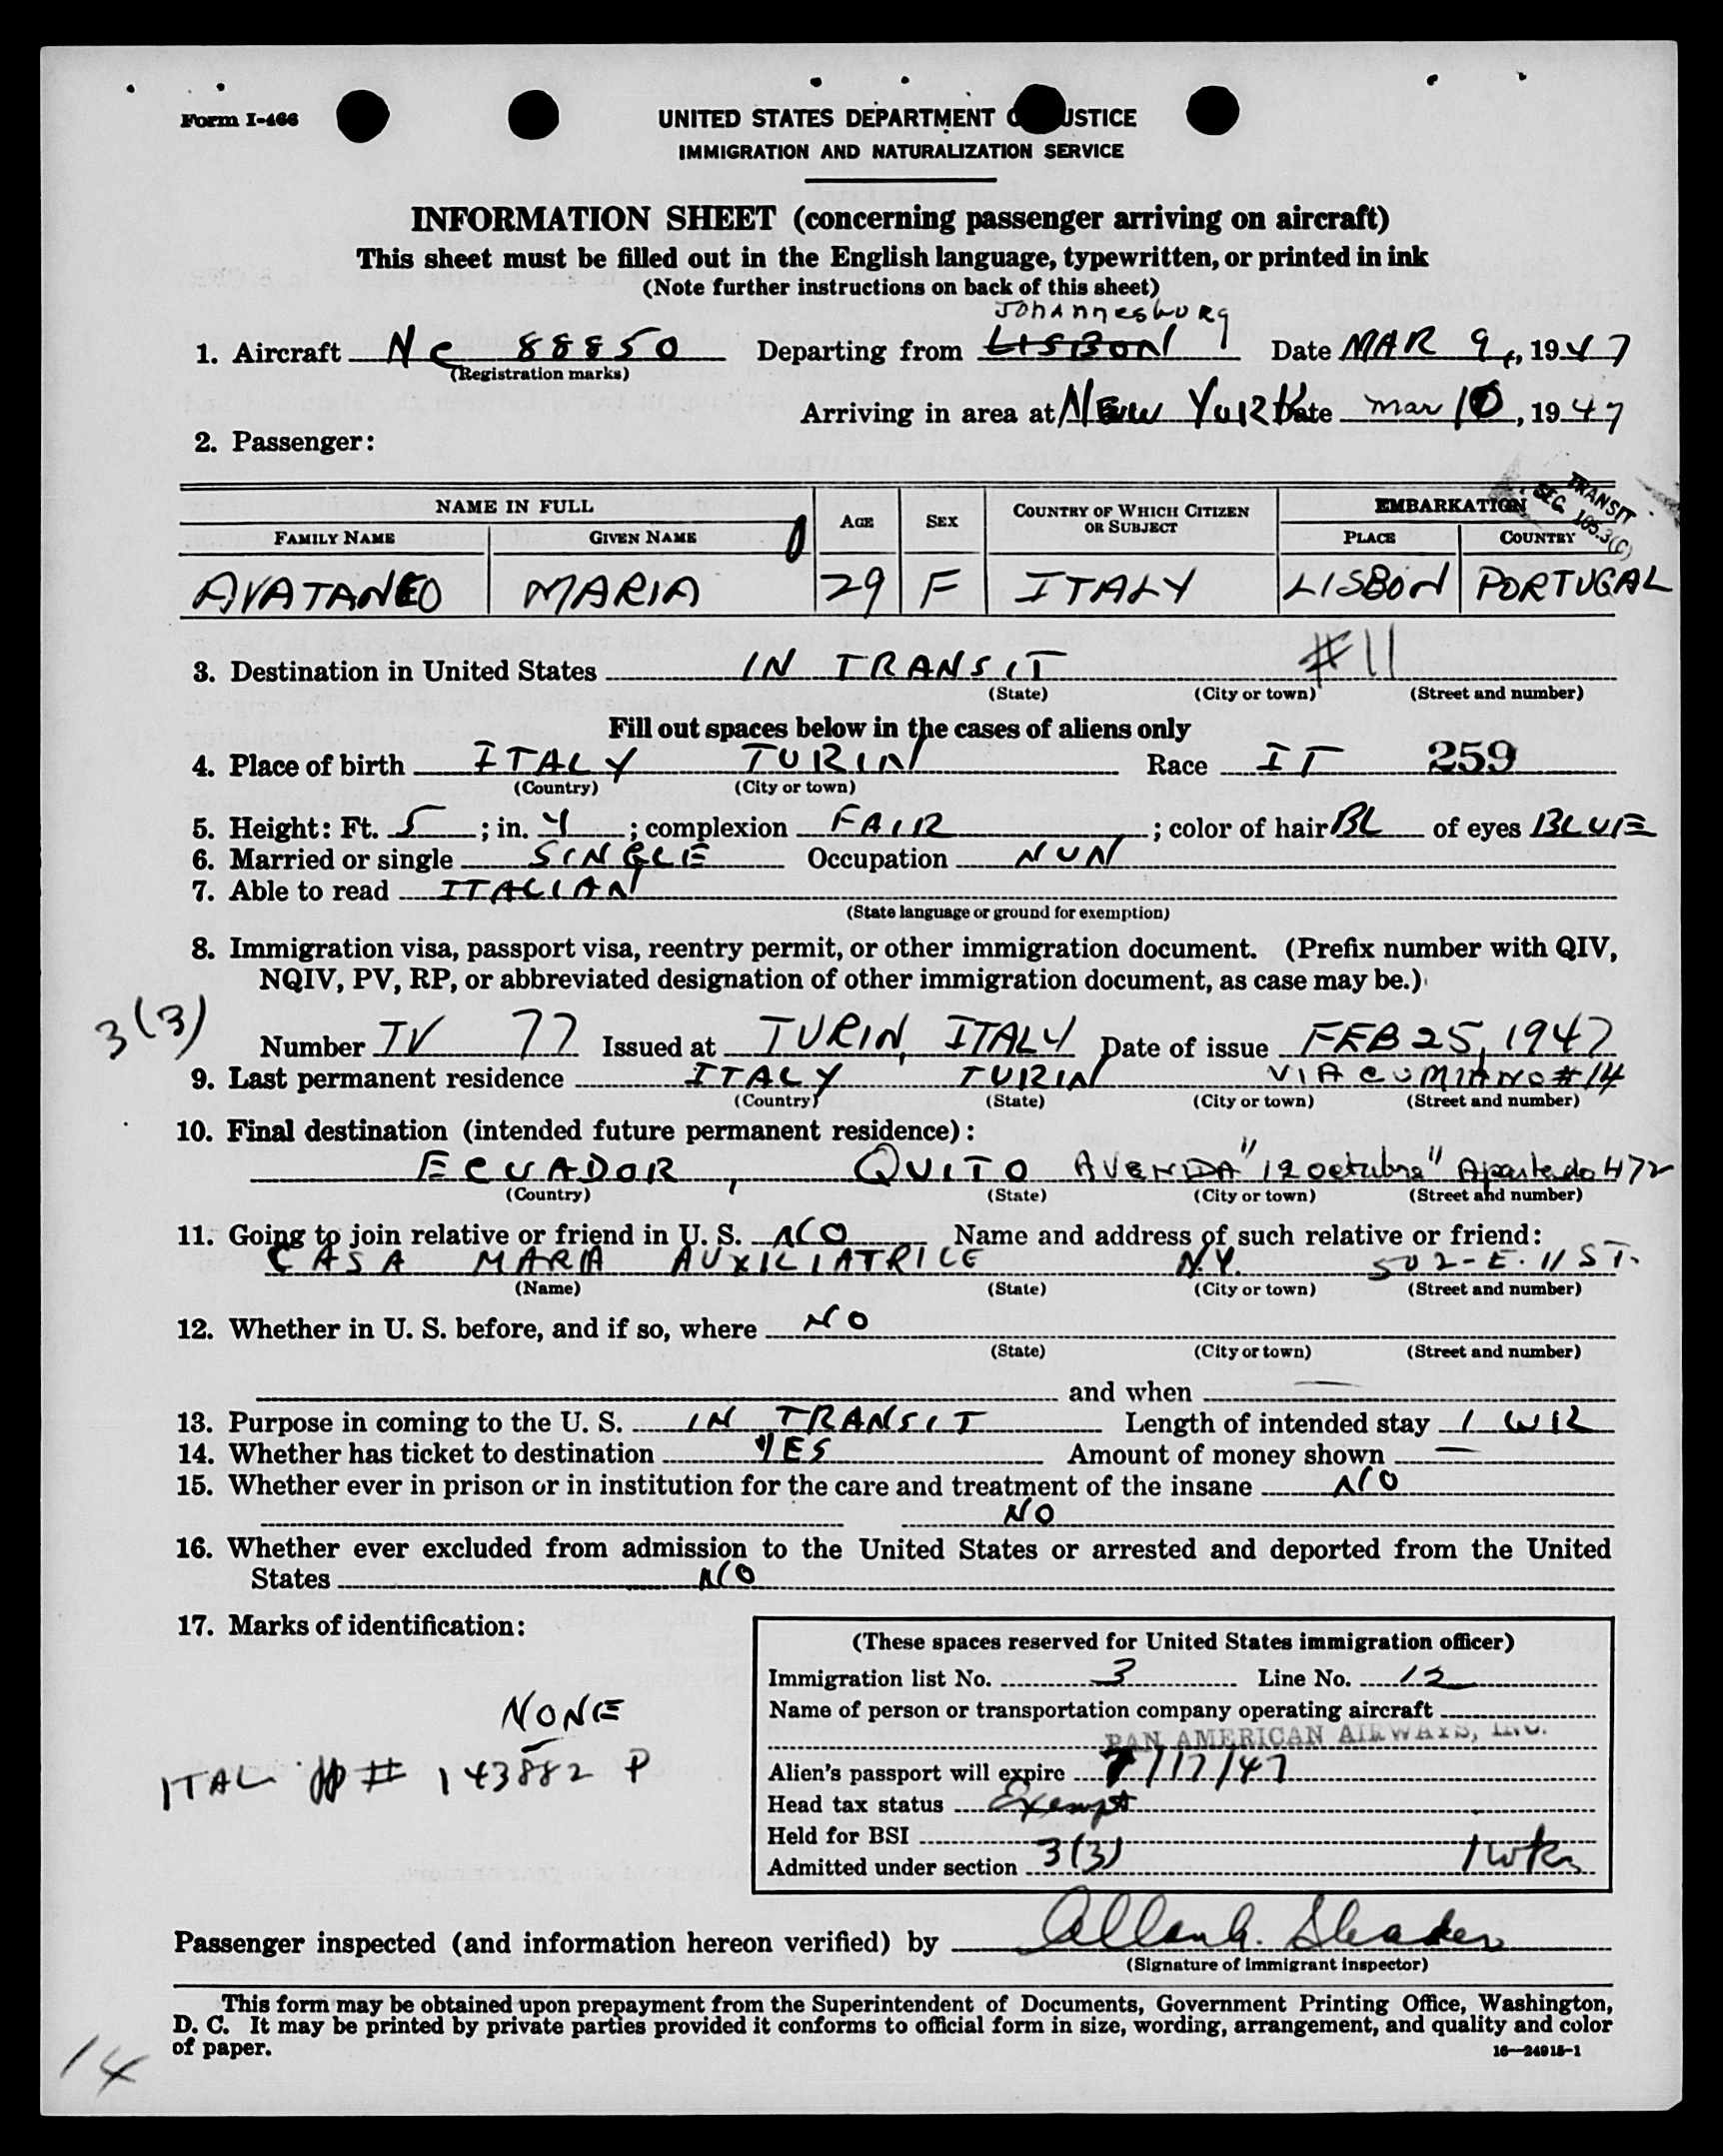 Form I-466
UNITED STATES DEPARTMENT OF JUSTICE
IMMIGRATION AND NATURALIZATION SERVICE
INFORMATION SHEET (concerning passenger arriving on aircraft)
This sheet must be filled out in the English language, typewritten, or printed in ink
(Note further instructions on back of this sheet)
Johannesburg
1. Aircraft NC 88850 Departing from LISBON Date MAR 9, 1947
(Registration marks)
Arriving in area at NEW YORK Date mar 10, 1947
2. Passenger:
TRANSIT
SEC. 105.3(C)
NAME IN FULL AGE SEX COUNTRY OF WHICH CITIZEN OR SUBJECT EMBARKATION
FAMILY NAME GIVEN NAME PLACE COUNTRY
AVATANEO MARIA 29 F ITALY LISBON PORTUGAL
3. Destination in United States IN TRANSIT #11
(State) (City or town) (Street and number)
Fill out spaces below in the cases of aliens only
4. Place of birth ITALY TURIN Race IT 259
(Country) (City or town)
5. Height: Ft. 5; in. 4; complexion FAIR; color of hair BL of eyes BLUE
6. Married or single SINGLE Occupation NUN
7. Able to read ITALIAN
(State language or ground for exemption)
8. Immigration visa, passport visa, reentry permit, or other immigration document. (Prefix number with QIV,
NQIV, PV, RP, or abbreviated designation of other immigration document, as case may be.)
3(3)
Number TV 77 Issued at TURIN, ITALY Date of issue FEB 25, 1947
9. Last permanent residence ITALY TURIN VIA CUMIANO #14
(Country) (State) (City or town) (Street and number)
10. Final destination (intended future permanent residence):
ECUADOR, QUITO AVENIDA "12 octubre" Apartado 472
(Country) (State) (City or town) (Street and number)
11. Going to join relative or friend in U. S. NO Name and address of such relative or friend:
CASA MARIA AUXILIATRICE N.Y. 502-E. 11 ST.
(Name) (State) (City or town) (Street and number)
12. Whether in U. S. before, and if so, where NO
(State) (City or town) (Street and number)
and when —
13. Purpose in coming to the U. S. IN TRANSIT Length of intended stay 1 WK
14. Whether has ticket to destination YES Amount of money shown —
15. Whether ever in prison or in institution for the care and treatment of the insane NO
NO
16. Whether ever excluded from admission to the United States or arrested and deported from the United
States NO
17. Marks of identification:
NONE
ITAL pp # 143882 P
(These spaces reserved for United States immigration officer)
Immigration list No. 3 Line No. 12
Name of person or transportation company operating aircraft
PAN AMERICAN AIRWAYS, INC.
Alien's passport will expire 7/17/47
Head tax status Exempt
Held for BSI
Admitted under section 3(3) 1 wk
Passenger inspected (and information hereon verified) by Allan G. Shader
(Signature of immigrant inspector)
This form may be obtained upon prepayment from the Superintendent of Documents, Government Printing Office, Washington,
D. C. It may be printed by private parties provided it conforms to official form in size, wording, arrangement, and quality and color
of paper.
16—24918-1
14